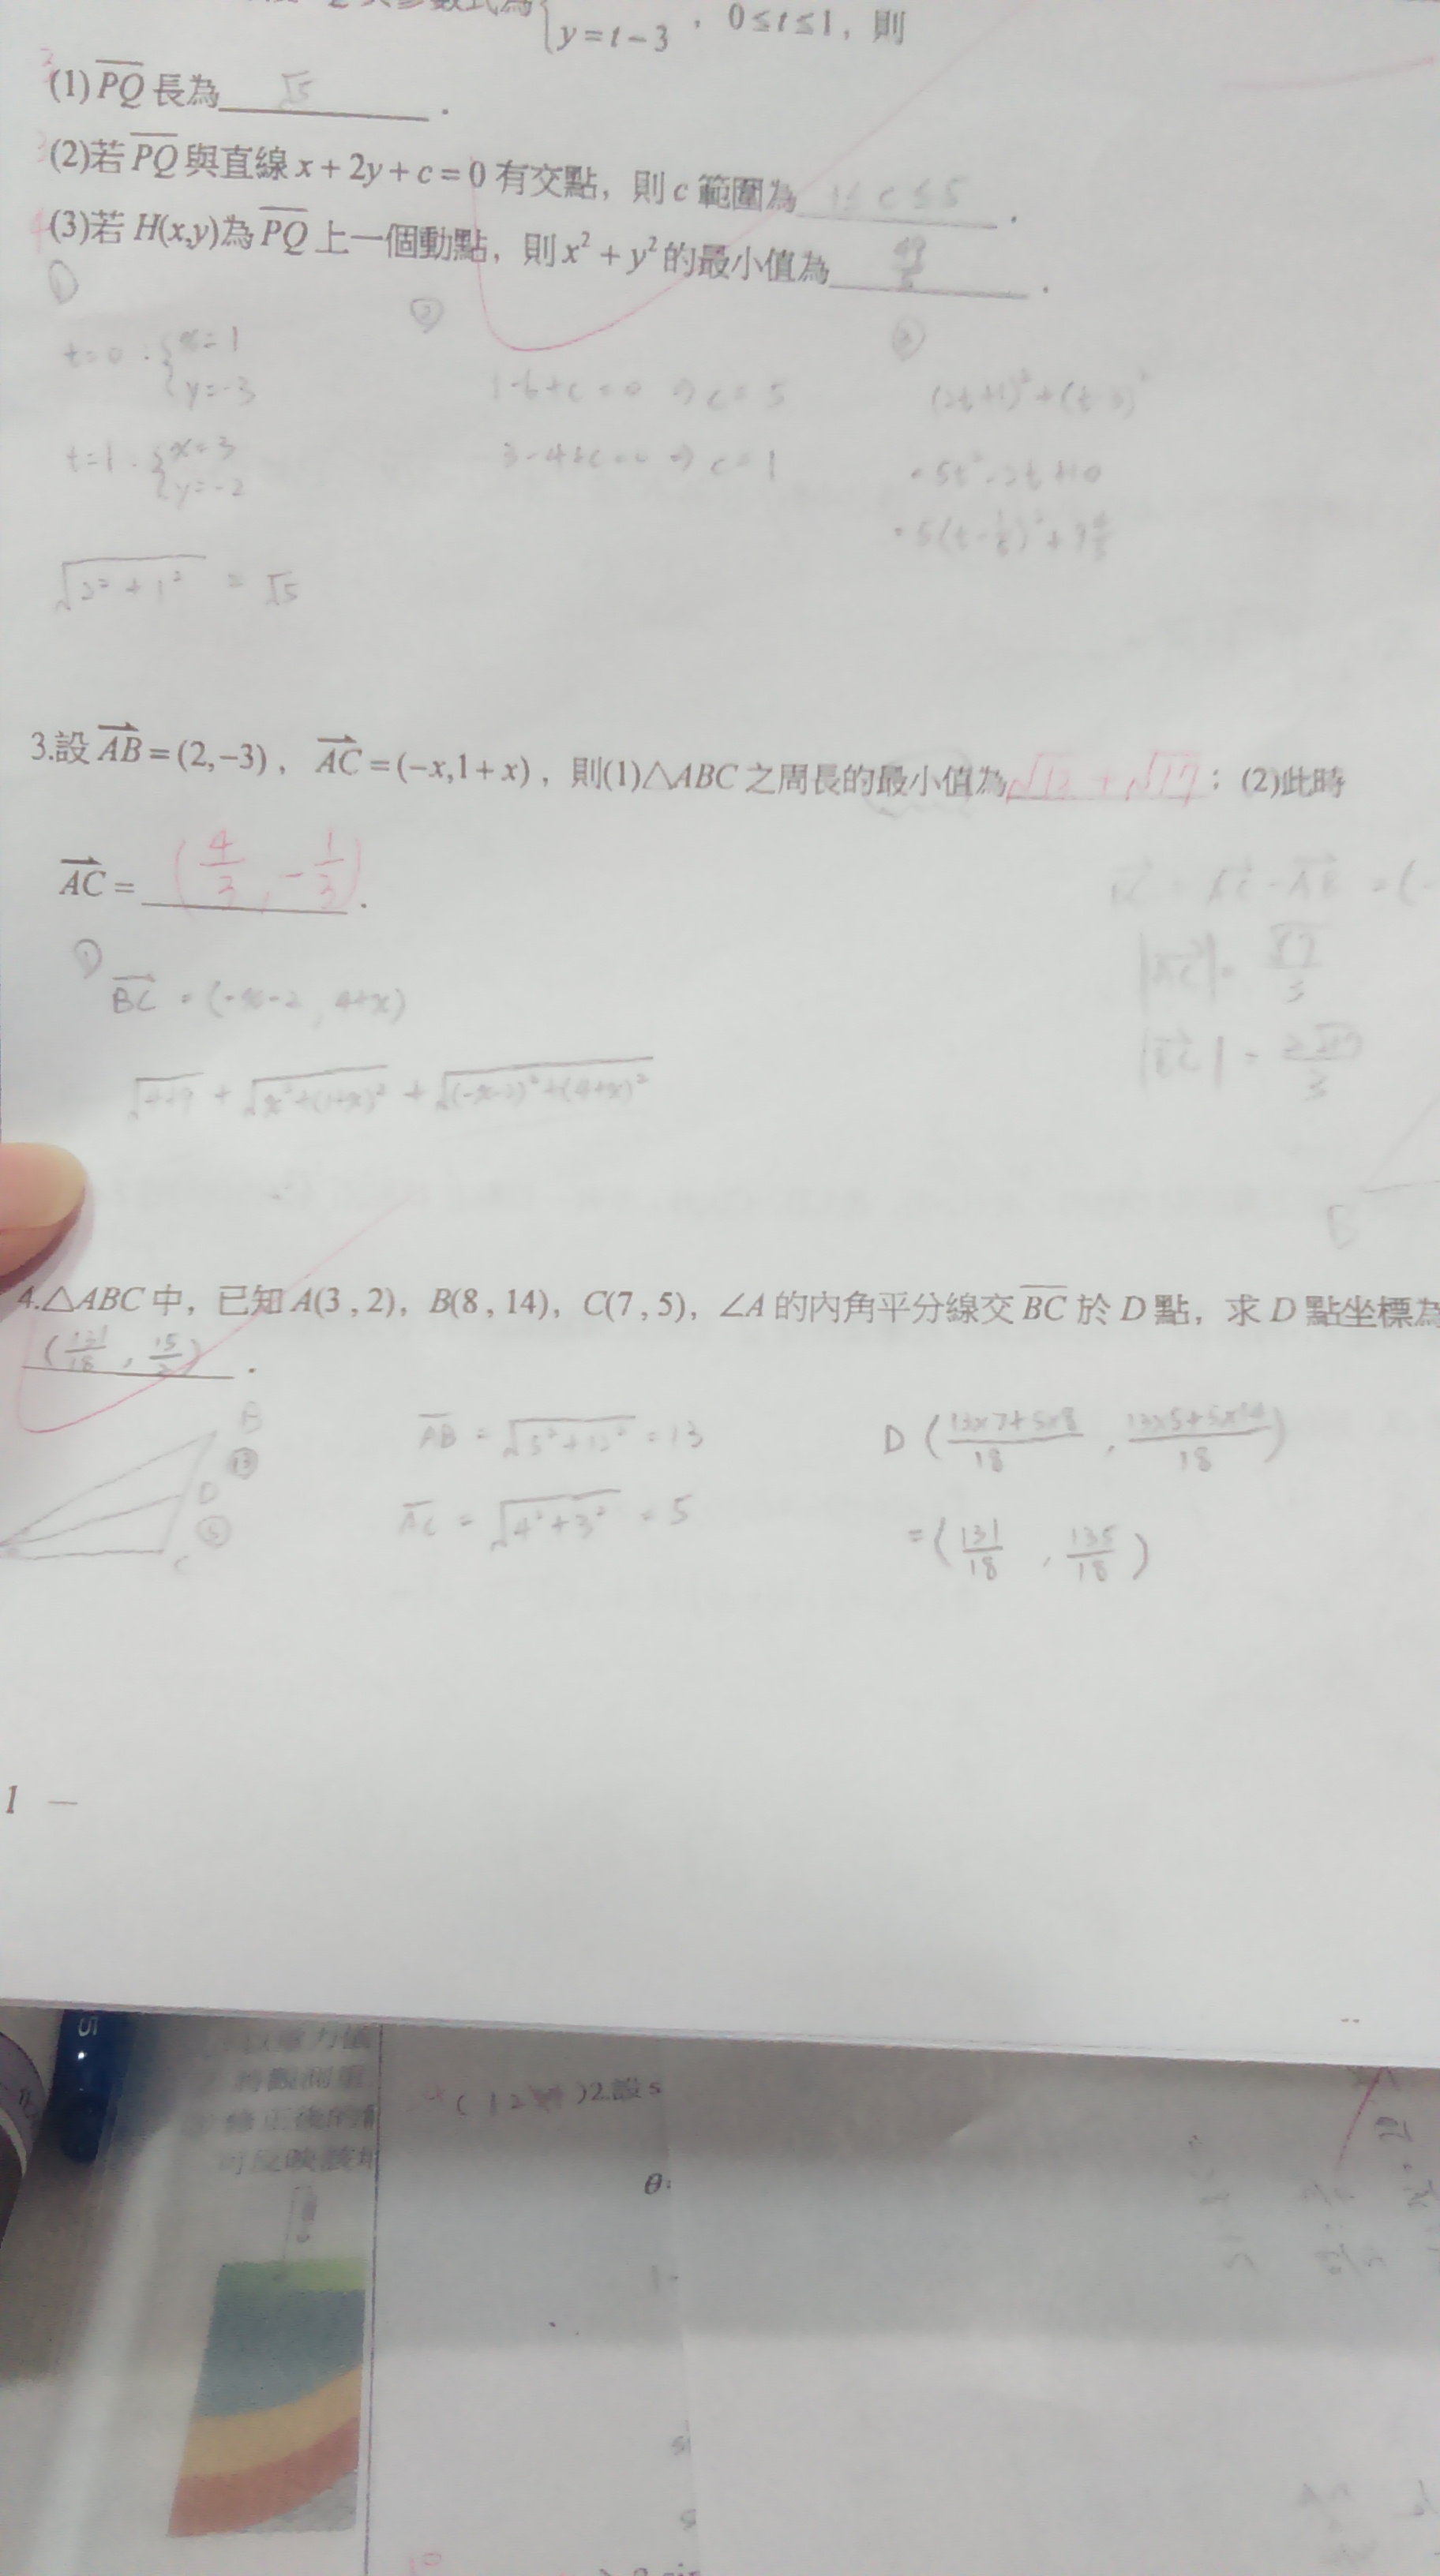 y=t-3 , 0≤t≤1, 則
(1) PQ 長為 √5 .
(2)若 PQ 與直線 x+2y+c=0 有交點, 則 c 範圍為 1≤c≤5 .
(3)若 H(x,y)為 PQ 上一個動點, 則 x²+y² 的最小值為 49/5 .
① ② ③
t=0 : {x=1 y=-3
t=1 : {x=3 y=-2
√2²+1² = √5
1-6+c=0 ⇒ c=5
3-4+c=0 ⇒ c=1
(2t+1)²+(t-3)²
=5t²-2t+10
=5(t-1/5)²+9 4/5
3.設 AB=(2,-3), AC=(-x,1+x), 則(1)△ABC 之周長的最小值為 √13+√17 ; (2)此時
AC= (4/3, -1/3) .
① BC = (-x-2, 4+x)
√4+9 + √x²+(1+x)² + √(-x-2)²+(4+x)²
BC = AC - AB = (-
|AC| = √17/3
|BC| = 2√17/3
B
4.△ABC 中, 已知 A(3,2), B(8,14), C(7,5), ∠A 的內角平分線交 BC 於 D 點, 求 D 點坐標為
(131/18, 15/2) .
B
⑬
D
⑤
C
AB = √5²+12² = 13
AC = √4²+3² = 5
D (13×7+5×8/18, 13×5+5×14/18)
=(131/18, 135/18)
1 —
)2.設 s
θ